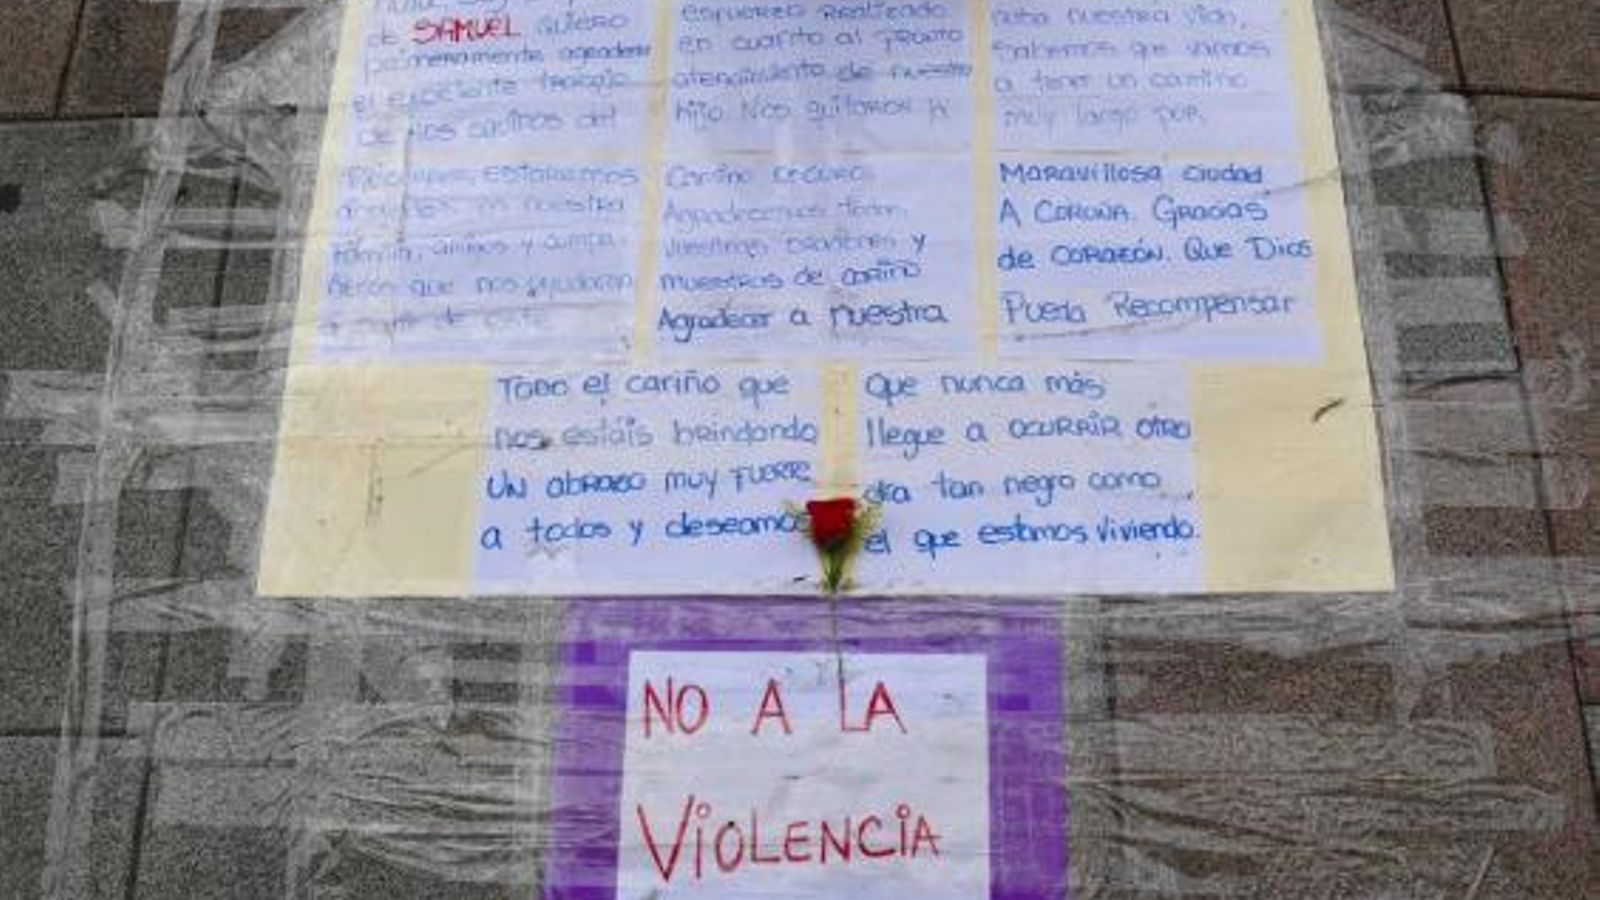 de SAMUEL quiero
primeramente agradecer
el excelente trabajo
de los
esfuerzo realizado
en cuanto al pronto
de nuestro
hijo Nos quitaron la
nuestra vida,
sabemos que vamos
a tener un camino
muy largo por
estaremos
en nuestra
familia, amigos y compa-
ñeros que nos ayudaron
a de este
camino oscuro.
Agradecemos todas
vuestras oraciones y
muestras de cariño
Agradecer a nuestra
Maravillosa ciudad
A CORUÑA. GRACIAS
de CORAZÓN. Que Dios
Pueda Recompensar
Todo el cariño que
nos estáis brindando
UN abrazo muy FUERTE
a todos y deseamos
Que nunca más
llegue a OCURRIR otro
día tan negro como
el que estamos viviendo.
NO A LA
VIOLENCIA